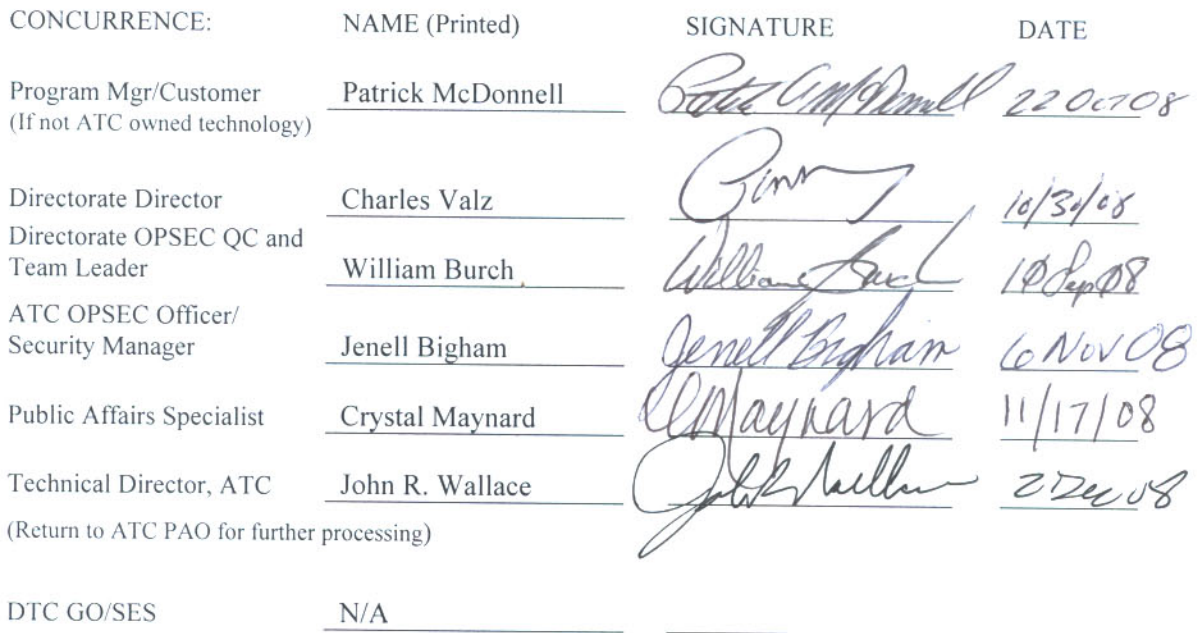 CONCURRENCE: NAME (Printed) SIGNATURE DATE
Program Mgr/Customer Patrick McDonnell 22 Oct 08
(If not ATC owned technology)
Directorate Director Charles Valz 10/30/08
Directorate OPSEC QC and
Team Leader William Burch William Burch 10 Sep 08
ATC OPSEC Officer/
Security Manager Jenell Bigham Jenell Bigham 6 Nov 08
Public Affairs Specialist Crystal Maynard CMaynard 11/17/08
Technical Director, ATC John R. Wallace 2 Dec 08
(Return to ATC PAO for further processing)
DTC GO/SES N/A